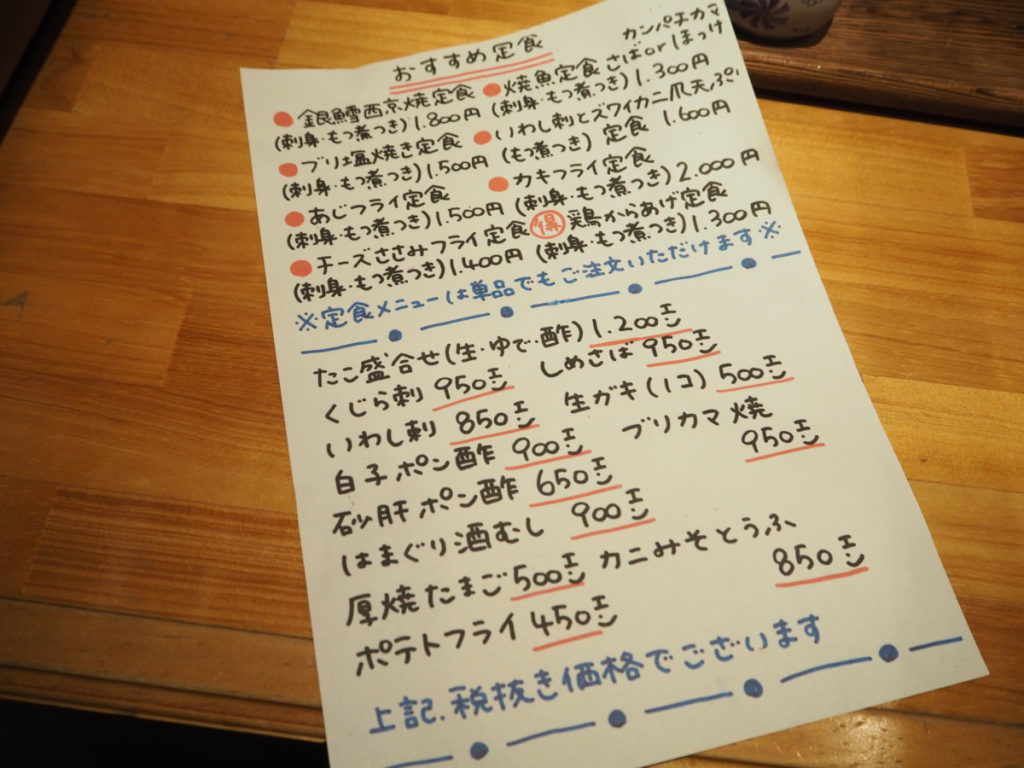 おすすめ定食
カンパチカマ
● 銀鱈西京焼定食
(刺身・もつ煮つき) 1.800円
● 焼魚定食 さばorほっけ
(刺身・もつ煮つき) 1.300円
● ブリ塩焼き定食
(刺身・もつ煮つき) 1.500円
● いわし刺とズワイカニ爪天ぷら
(もつ煮つき) 定食 1.600円
● あじフライ定食
(刺身・もつ煮つき) 1.500円
● カキフライ定食
(刺身・もつ煮つき) 2.000円
● チーズささみフライ定食
(刺身・もつ煮つき) 1.400円
得 鶏からあげ定食
(刺身・もつ煮つき) 1.300円
※定食メニューは単品でもご注文いただけます※
たこ盛合せ(生・ゆで・酢) 1.200エン
くじら刺 950エン しめさば 950エン
いわし刺 850エン 生ガキ(1コ) 500エン
白子ポン酢 900エン ブリカマ焼
950エン
砂肝ポン酢 650エン
はまぐり酒むし 900エン
厚焼たまご 500エン カニみそとうふ
850エン
ポテトフライ 450エン
上記.税抜き価格でございます